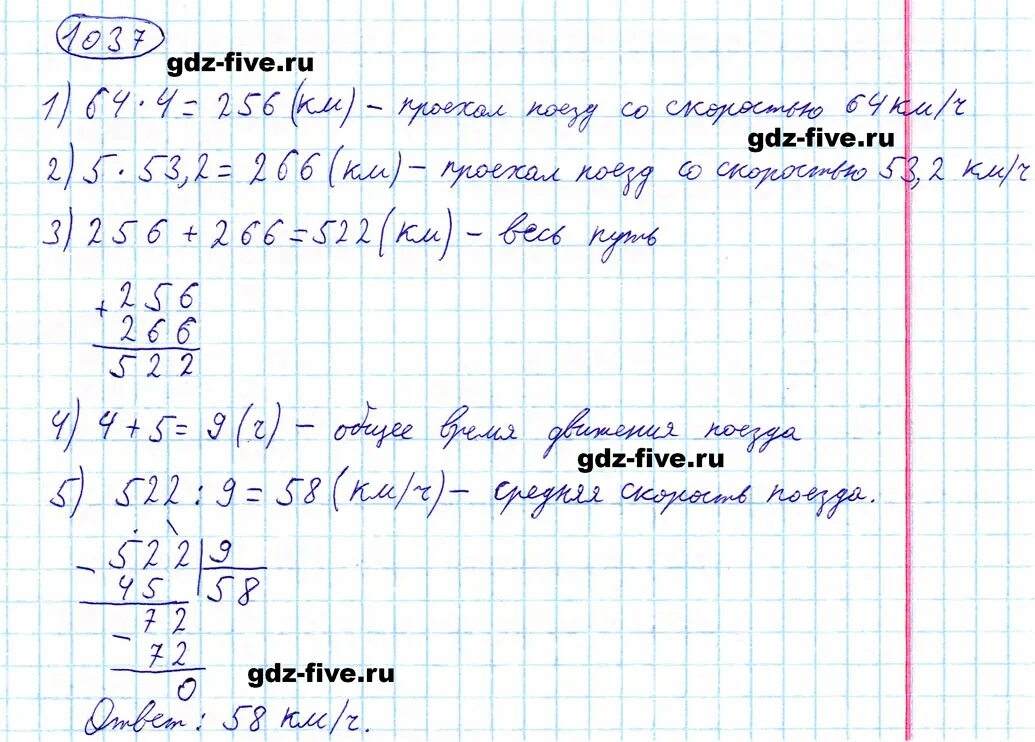 1037
gdz-five.ru
1) 64 · 4 = 256 (км) – проехал поезд со скоростью 64 км/ч
gdz-five.ru
2) 5 · 53,2 = 266 (км) – проехал поезд со скоростью 53,2 км/ч
3) 256 + 266 = 522 (км) – весь путь
+ 256
266
522
4) 4 + 5 = 9 (ч) – общее время движения поезда
gdz-five.ru
5) 522 : 9 = 58 (км/ч) – средняя скорость поезда.
– 522 | 9
45 | 58
– 72
72
0
gdz-five.ru
Ответ: 58 км/ч.